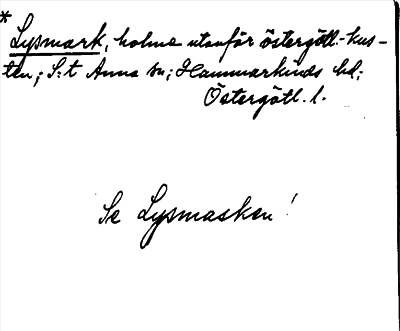 *
Lysmark, holme utanför östergötl.-kus-
ten; S:t Anna sn; Hammarkinds hd;
Östergötl. l.
Se Lysmasken!